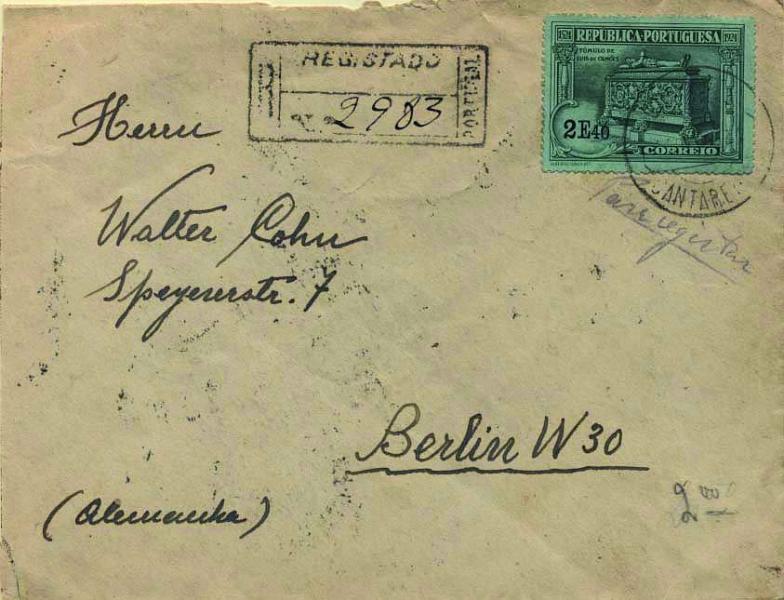 REGISTADO
2983
PORTUGAL
1524 REPÚBLICA PORTUGUESA 1924
TÚMULO DE
LUIS DE CAMÕES
2E40
CORREIO
SANTARE
Para registar
Herrn
Walter Cohn
Speyererstr. 7
Berlin W 30
(Alemanha)